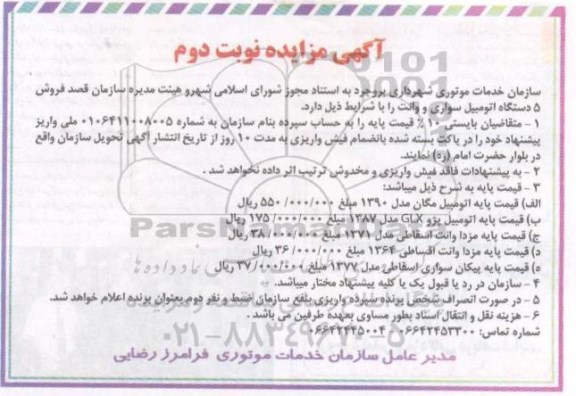 آگهی مزایده نوبت دوم
سازمان خدمات موتوری شهرداری بروجرد به استناد مجوز شورای اسلامی شهر و هیئت مدیره سازمان قصد فروش
۵ دستگاه اتومبیل سواری و وانت را با شرایط ذیل دارد.
۱ - متقاضیان بایستی ۱۰٪ قیمت پایه را به حساب سپرده بنام سازمان به شماره ۰۱۰۶۴۱۱۰۰۸۰۰۵ ملی واریز
پیشنهاد خود را در پاکت بسته شده بانضمام فیش واریزی به مدت ۱۰ روز از تاریخ انتشار آگهی تحویل سازمان واقع
در بلوار حضرت امام (ره) نمایند.
۲ - به پیشنهادات فاقد فیش واریزی و مخدوش ترتیب اثر داده نخواهد شد.
۳ - قیمت پایه به شرح ذیل میباشد:
الف) قیمت پایه اتومبیل مگان مدل ۱۳۹۰ مبلغ ۵۵۰/۰۰۰/۰۰۰ ریال
ب) قیمت پایه اتومبیل پژو GLX مدل ۱۳۸۷ مبلغ ۱۷۵/۰۰۰/۰۰۰ ریال
ج) قیمت پایه مزدا وانت اسقاطی مدل ۱۳۷۱ مبلغ ۳۸/۰۰۰/۰۰۰ ریال
د) قیمت پایه مزدا وانت اقساطی ۱۳۶۴ مبلغ ۳۶/۰۰۰/۰۰۰ ریال
ه) قیمت پایه پیکان سواری اسقاطی مدل ۱۳۷۷ مبلغ ۳۷/۰۰۰/۰۰۰ ریال
۴ - سازمان در رد یا قبول یک یا کلیه پیشنهاد مختار میباشد.
۵ - در صورت انصراف شخص برنده سپرده واریزی بنفع سازمان ضبط و نفر دوم بعنوان برنده اعلام خواهد شد.
۶ - هزینه نقل و انتقال اسناد بطور مساوی بعهده طرفین می باشد.
شماره تماس: ۰۶۶۴۲۴۵۳۳۰۰ - ۰۶۶۴۲۴۴۵۰۰۴
مدیر عامل سازمان خدمات موتوری فرامرز رضایی
ParsNamadData
۰۲۱-۸۸۳۴۹۶۷۰-۵